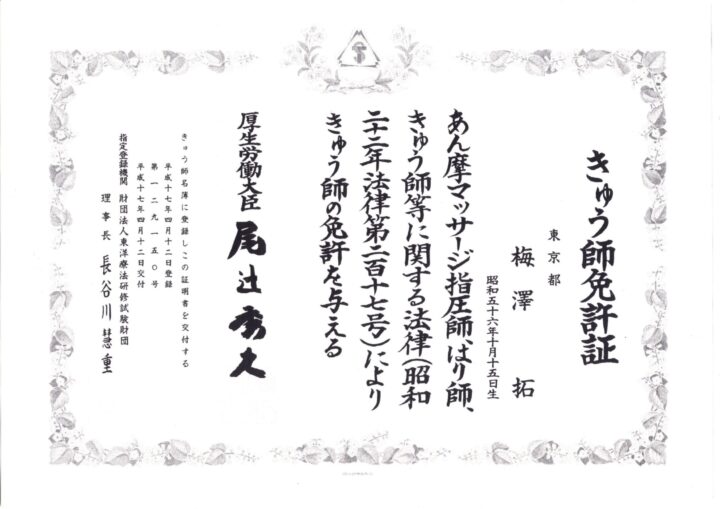 きゅう師免許証
東京都
梅澤拓
昭和五十六年十月十五日生
あん摩マッサージ指圧師、はり師、
きゅう師等に関する法律(昭和
二十二年法律第二百十七号)により
きゅう師の免許を与える
厚生労働大臣 尾辻秀久
きゅう師名簿に登録しこの証明書を交付する
平成十七年四月十二日登録
第一二九一五〇号
平成十七年四月十二日交付
指定登録機関 財団法人東洋療法研修試験財団
理事長 長谷川慧重